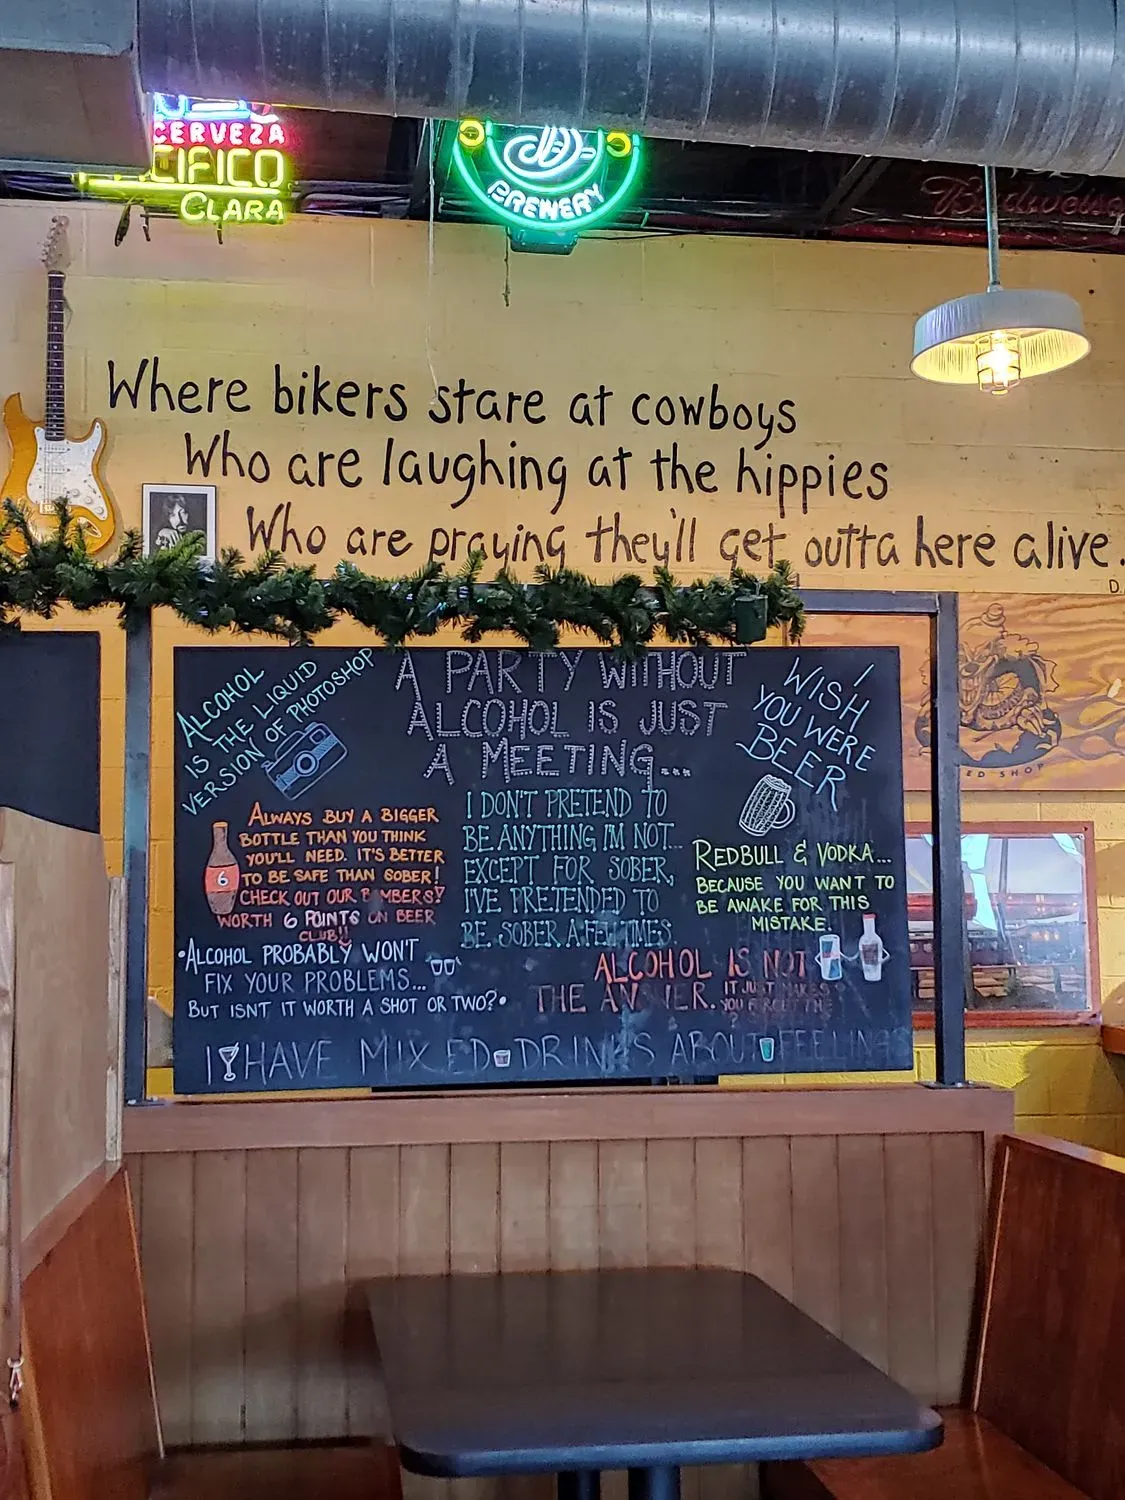 CERVEZA
CIFICO
CLARA
BREWERY
Budweiser
Where bikers stare at cowboys
Who are laughing at the hippies
Who are praying they'll get outta here alive.
D.
ALCOHOL
IS THE LIQUID
VERSION OF PHOTOSHOP
A PARTY WITHOUT
ALCOHOL IS JUST
A MEETING...
I
WISH
YOU WERE
BEER
ALWAYS BUY A BIGGER
BOTTLE THAN YOU THINK
YOU'LL NEED. IT'S BETTER
TO BE SAFE THAN SOBER!
CHECK OUT OUR B MBERS!
WORTH 6 POINTS ON BEER
CLUB!!
6
I DON'T PRETEND TO
BE ANYTHING I'M NOT...
EXCEPT FOR SOBER,
I'VE PRETENDED TO
BE SOBER A FEW TIMES
REDBULL & VODKA...
BECAUSE YOU WANT TO
BE AWAKE FOR THIS
MISTAKE.
•ALCOHOL PROBABLY WON'T
FIX YOUR PROBLEMS...
BUT ISN'T IT WORTH A SHOT OR TWO?•
ALCOHOL IS NOT
THE AN WER. IT JUST MAKES
YOU FORGET THE
?
I HAVE MIXED DRINKS ABOUT FEELINGS
ED SHOP